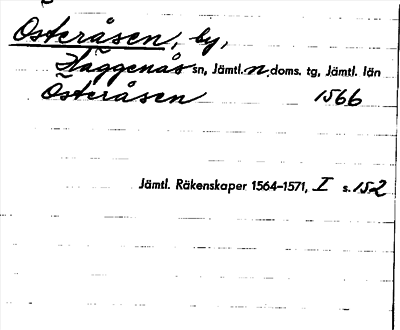 Osteråsen, by,
Häggenås sn, Jämtl. n. doms. tg, Jämtl. län
Osteråsen 1566
Jämtl. Räkenskaper 1564-1571, I s. 152